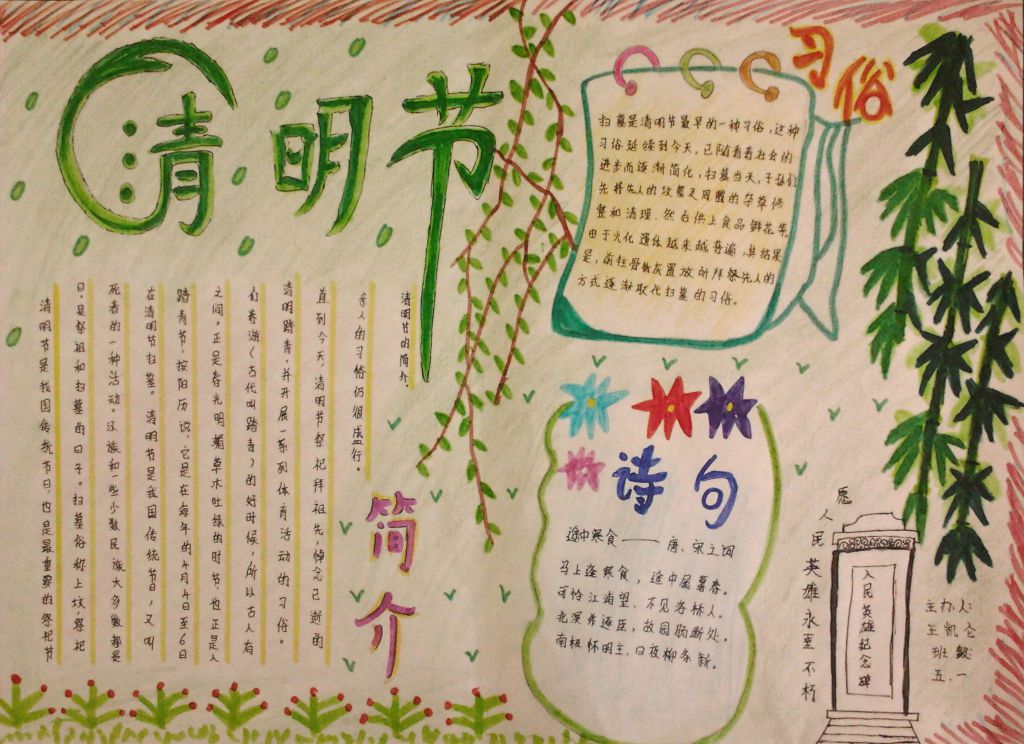 清明节
清明节的简介.
清明节是我国传统节日,也是最重要的祭祀节
日,是祭祖和扫墓的日子。扫墓俗称上坟,祭祀
死者的一种活动。汉族和一些少数民族大多数都是
在清明节扫墓。清明节是我国传统节日,又叫
踏青节,按阳历说,它是在每年的4月4日至6日
之间,正是春光明媚草木吐绿的时节,也正是人
们春游(古代叫踏青)的好时候,所以古人有
清明踏青,并开展一系列体育活动的习俗。
直到今天,清明节祭祀拜祖先,悼念已逝的
亲人的习俗仍很盛行。
简介
习俗
扫墓是清明节最早的一种习俗,这种
习俗延续到今天,已随着着社会的
进步而逐渐简化,扫墓当天,子孙们
先将先人的坟墓及周围的杂草修
整和清理,然后供上食品鲜花等
由于火化遗体越来越普遍,其结果
是,前往骨骸灰置放所拜祭先人的
方式逐渐取代扫墓的习俗。
诗句
途中寒食——唐,宋之问
马上逢寒食,途中属暮春。
可怜江浦望,不见洛桥人。
北溟逐臣,故园肠断处。
南极怀明主,日夜柳条新。
愿人民英雄永垂不朽
人民英雄纪念碑
主办人:
王凯仑
班级:
五.一